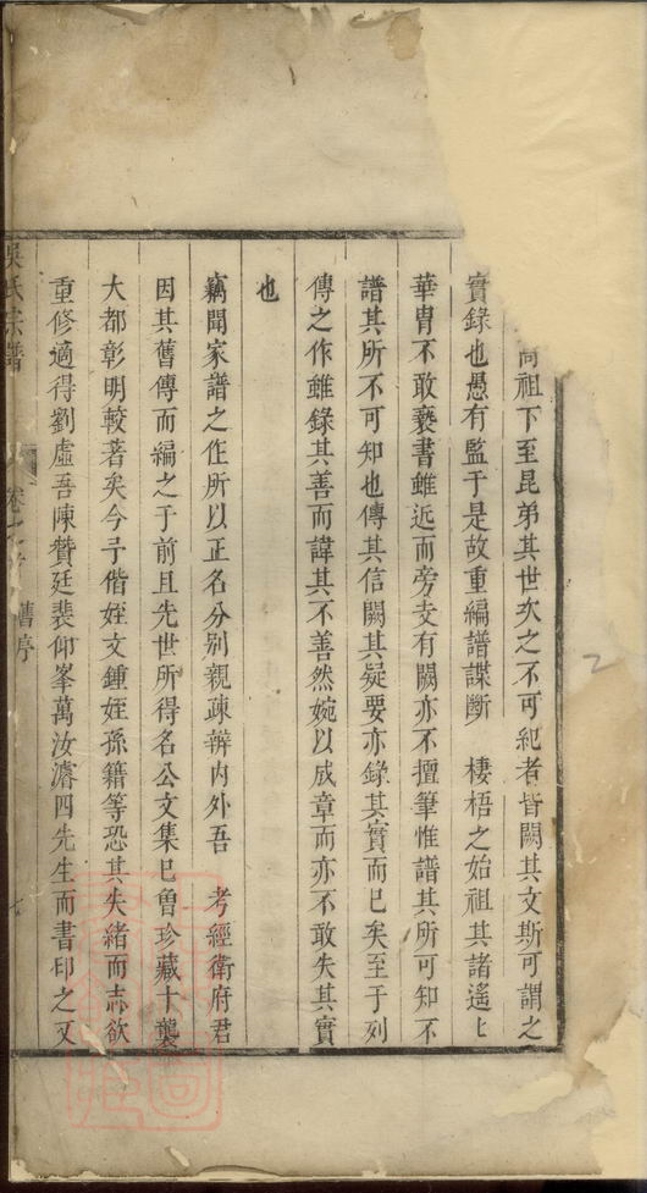 祖下至昆弟其世次之不可紀者皆闕其文斯可謂之
實錄也愚有監于是故重編譜諜斷 棲梧之始祖其諸遙上
華胄不敢褻書雖近而旁支有闕亦不擅筆惟譜其所可知不
譜其所不可知也傳其信闕其疑要亦錄其實而已矣至于列
傳之作雖錄其善而諱其不善然婉以成章而亦不敢失其實
也
竊聞家譜之作所以正名分別親疎辨內外吾 考經衛府君
因其舊傳而編之于前且先世所得名公文集已曾珍藏十襲
大都彰明較著矣今予偕姪文鍾姪孫籍等恐其失緒而志欲
重修適得劉虛吾陳贊廷裴仰峯萬汝濬四先生而書印之又
吳氏宗譜 卷之 舊序 七